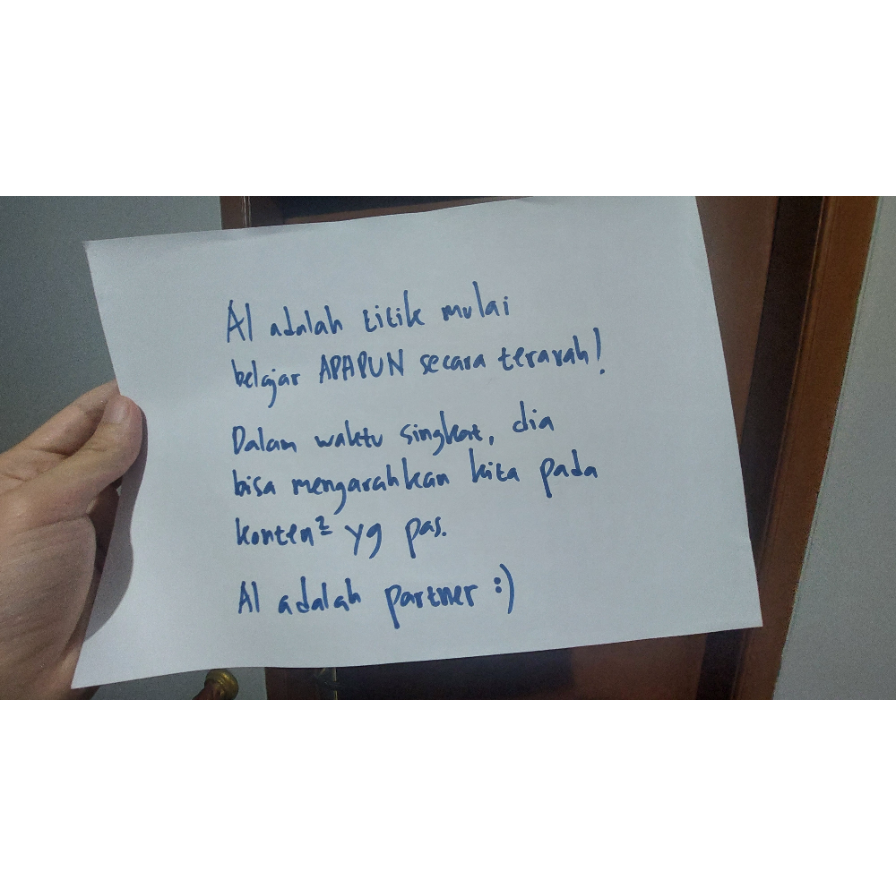 AI adalah titik mulai
belajar APAPUN secara terarah!
Dalam waktu singkat, dia
bisa mengarahkan kita pada
konten² yg pas.
AI adalah partner :)